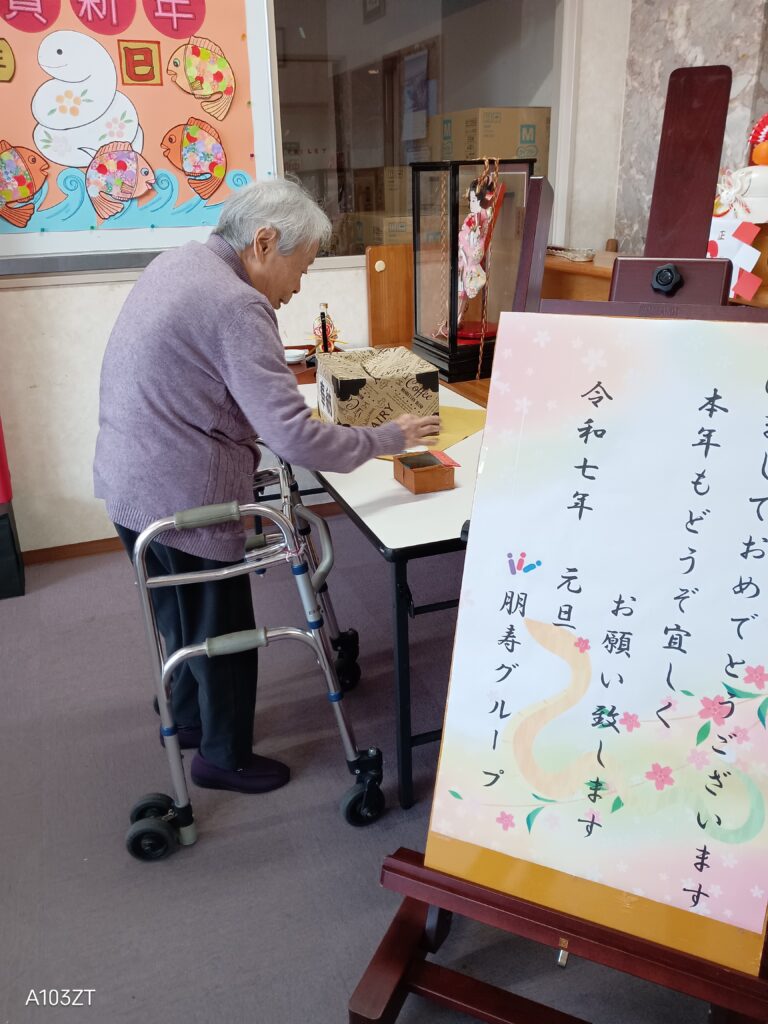 賀新年
巳
Coffee
DAIRY
M
正
しましておめでとうございます
本年もどうぞ宜しく
お願い致します
令和七年 元旦
朋寿グループ
A103ZT